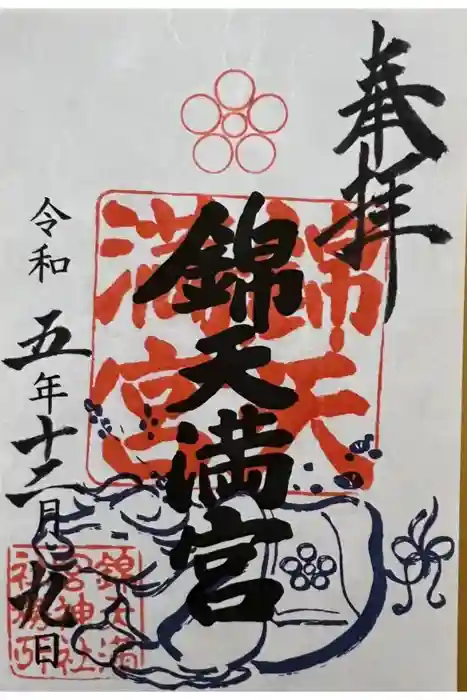 奉拝
錦天満宮
錦天
満宮
令和五年十二月二九日
錦天満
宮神社
社務所